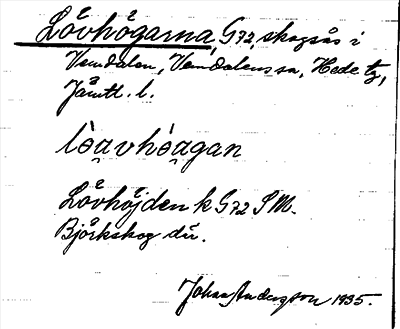 Lövhögarna, G72, skogsås i
Vemdalen, Vemdalens sn, Hede tg,
Jämtl. l.
lòa̯vhòa̯gan
Lövhöjden k G72 SM.
Björkskog där.
Johan Anderson 1935.